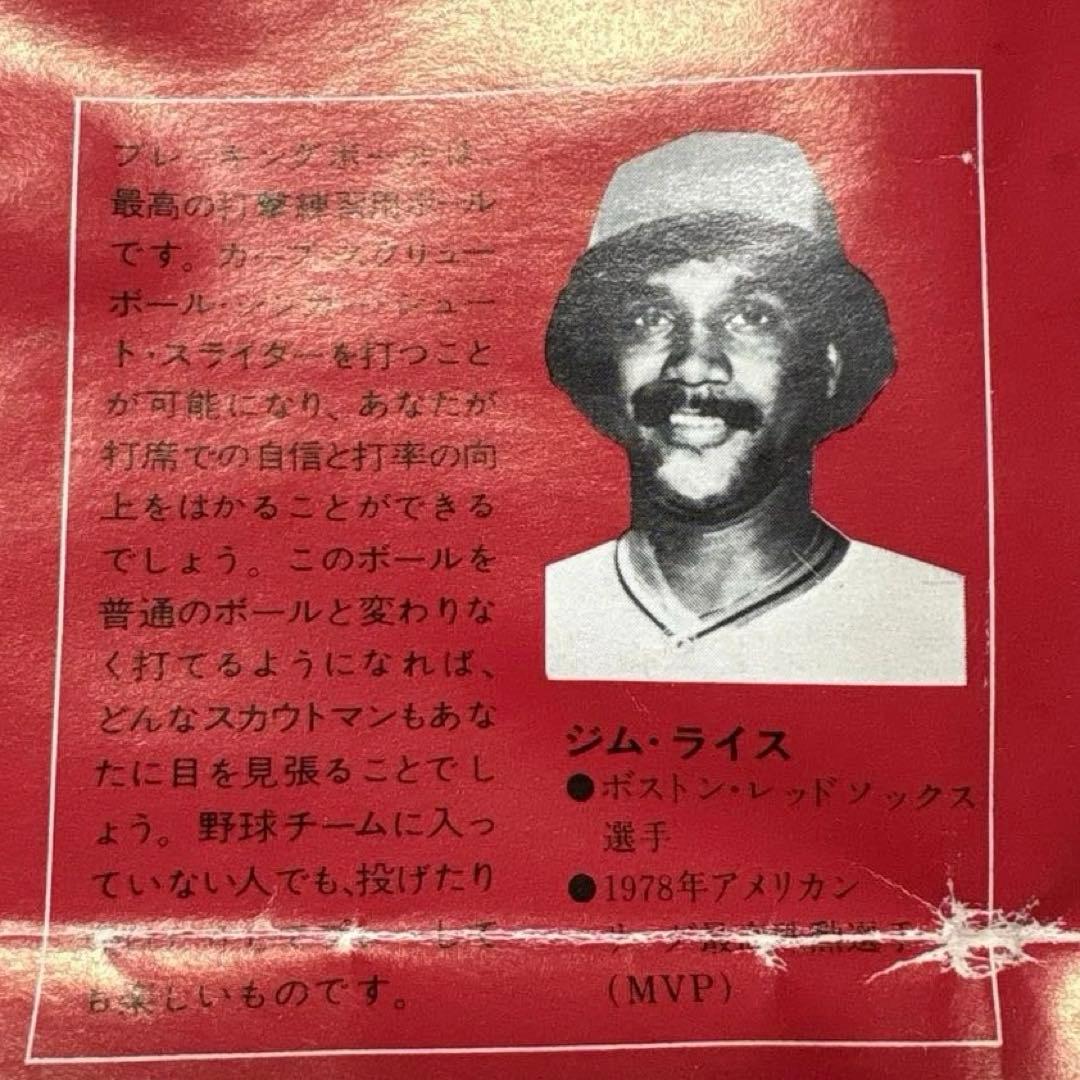 ブレーキングボールは、
最高の打撃練習用ボール
です。カーブ・スクリュー
ボール・シンカー・シュー
ト・スライダーを打つこと
が可能になり、あなたが
打席での自信と打率の向
上をはかることができる
でしょう。このボールを
普通のボールと変わりな
く打てるようになれば、
どんなスカウトマンもあな
たに目を見張ることでし
ょう。野球チームに入っ
ていない人でも、投げたり
して
も楽しいものです。
ジム・ライス
●ボストン・レッドソックス
選手
●1978年アメリカン
リーグ最高殊勲選手
(MVP)